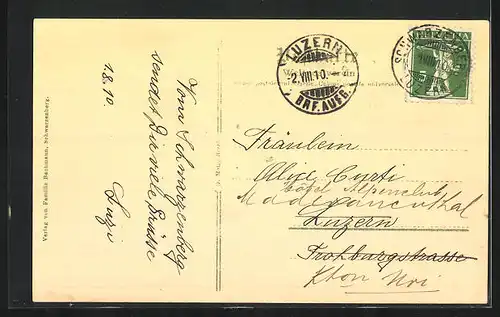 Verlag von Familie Bachmann, Schwarzenberg.
1.8.10
Vom Schwarzenberg
sendet Dir viele Grüsse
LUZERN
2.VIII.10.
BRF.AUFG.
SCHWARZENBERG
HELVETIA
5
Fräulein
Alice Curti
Hôtel Alpenclub
Maderanenthal
Luzern
Frohburgstrasse
Kton Uri